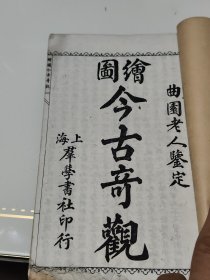 曲園老人鑒定
繪圖
今古奇觀
上海
羣學書社印行